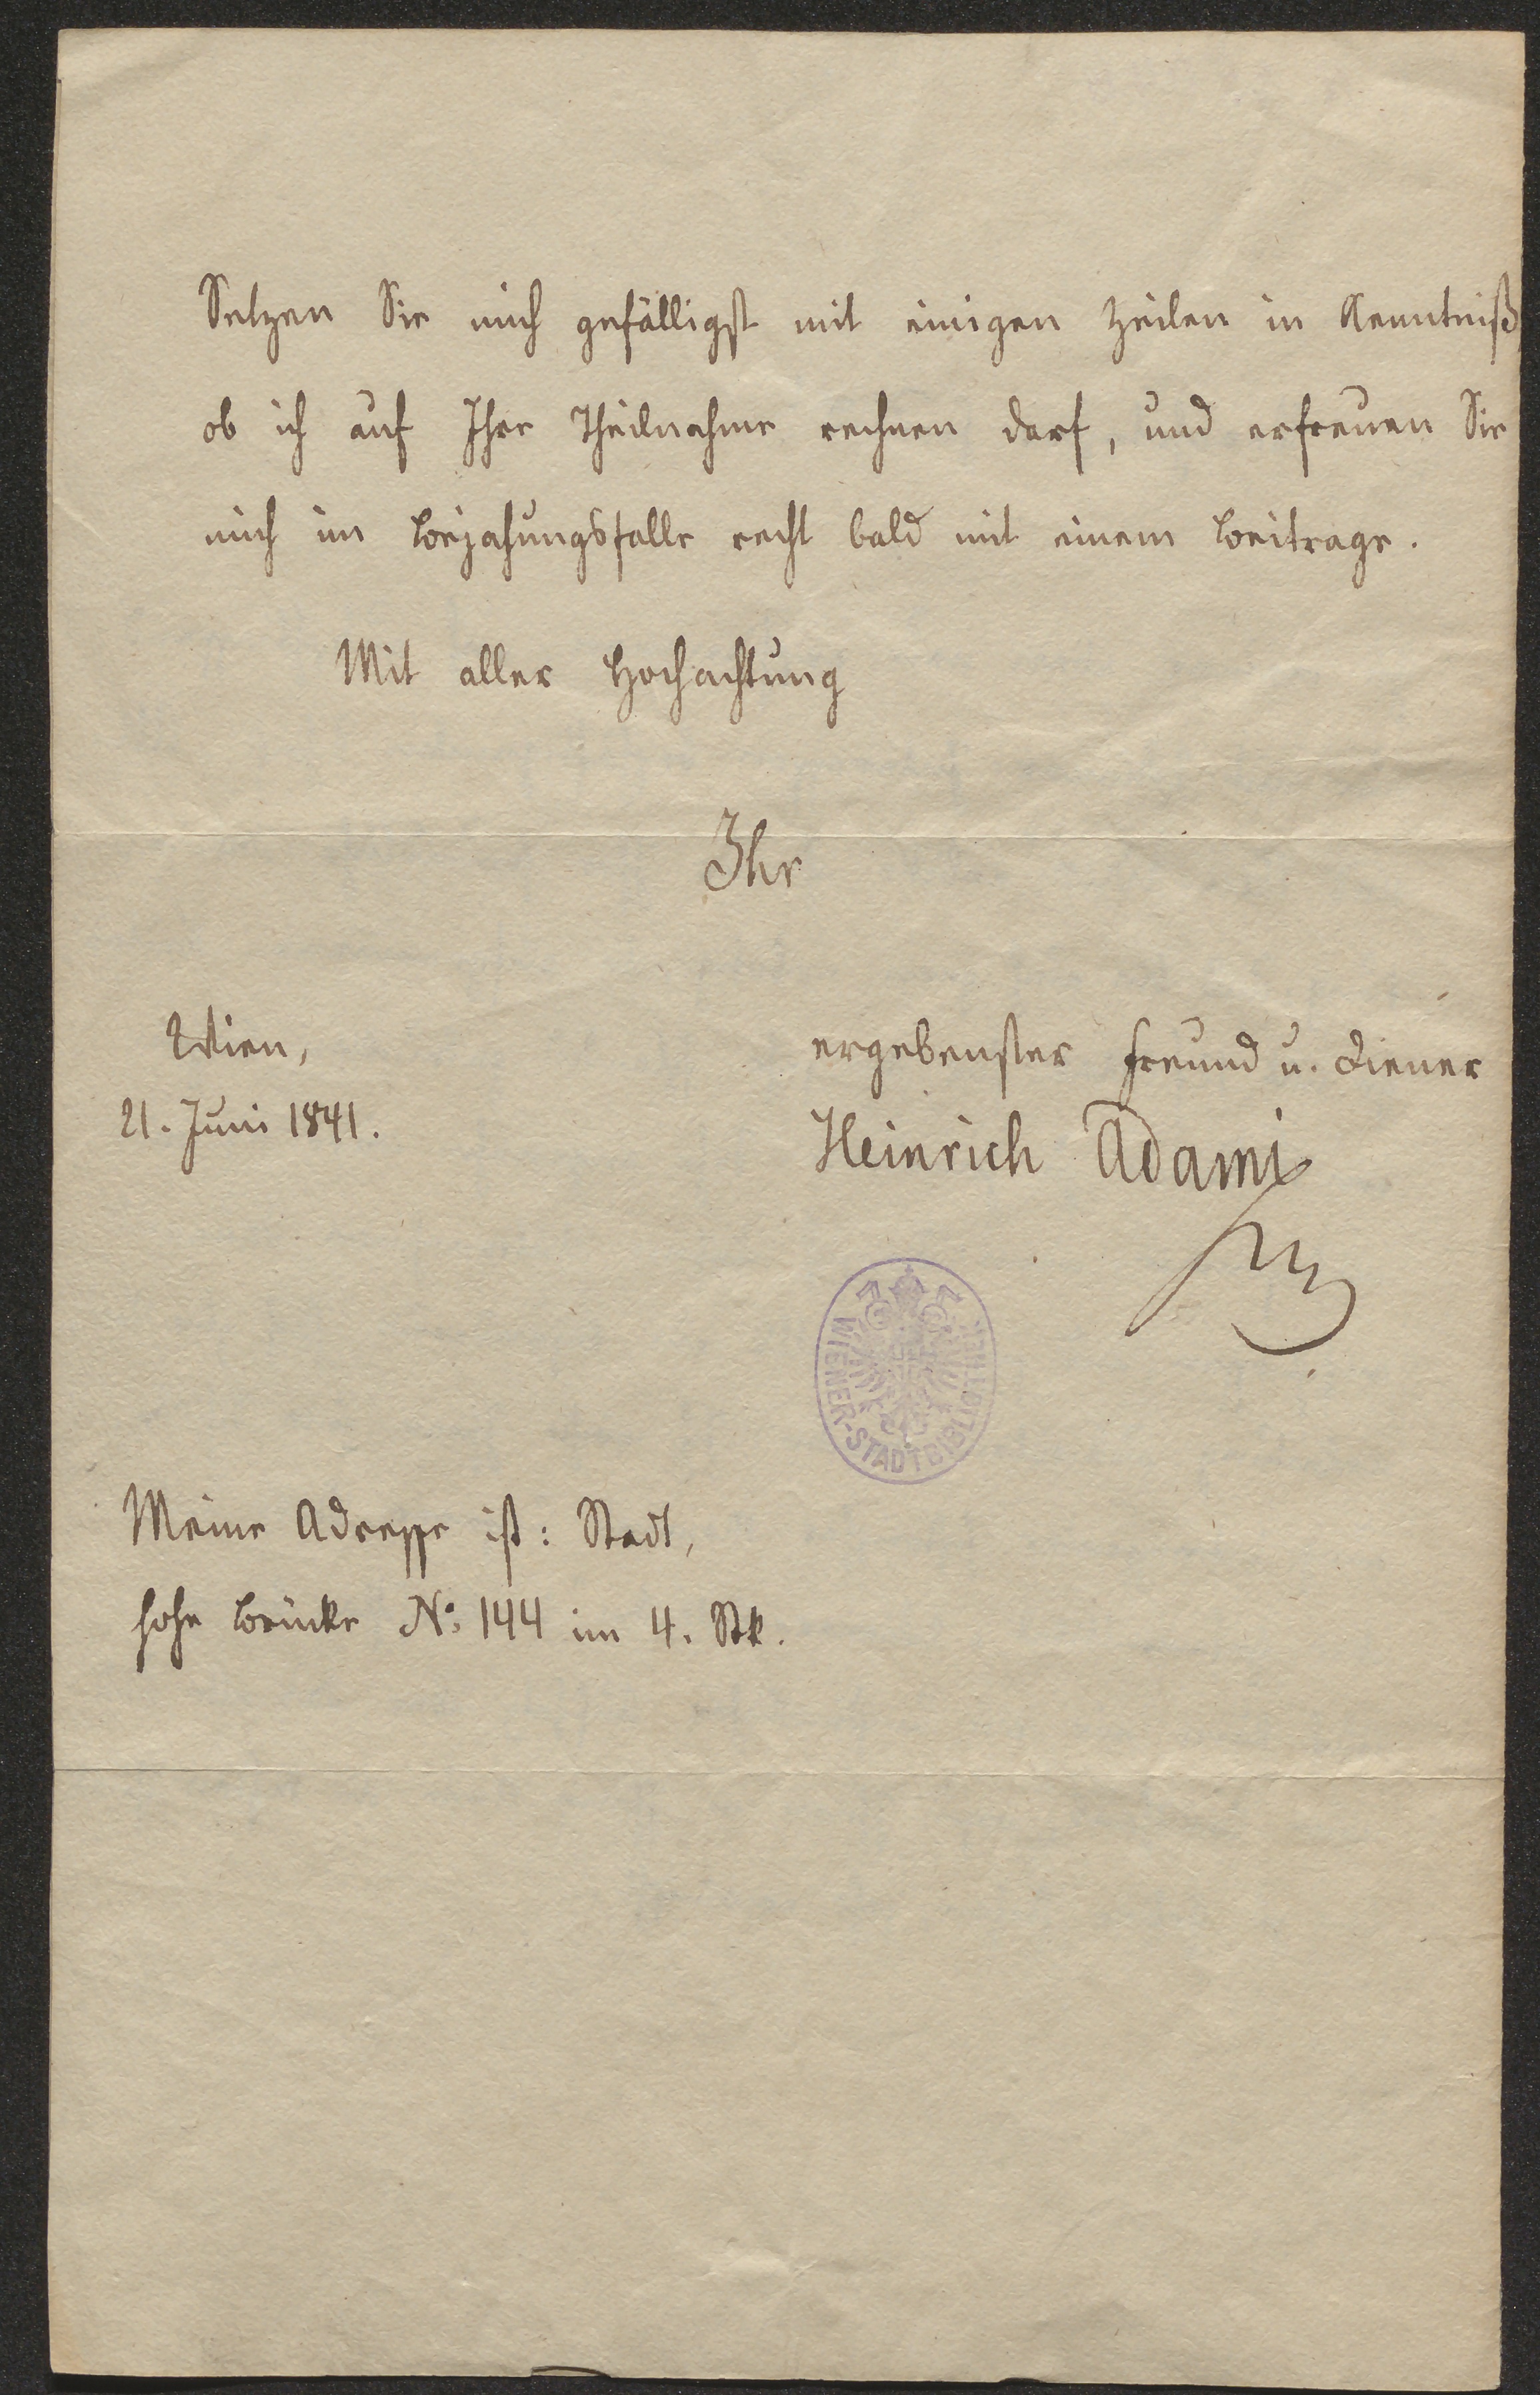 Setzen Sie mich gefälligst mit einigen Zeilen in Kenntniß,
ob ich auf Ihre Theilnahme rechnen darf, und erfreuen Sie
mich im Bejahungsfalle recht bald mit einem Beitrage.
Mit aller Hochachtung
Ihr
ergebenster Freund u. Diener
Heinrich Adami
Wien,
21. Juni 1841.
WIENER-STADTBIBLIOTHEK
Meine Adresse ist: Stadt,
hohe Brücke No: 144 im 4. Stk.